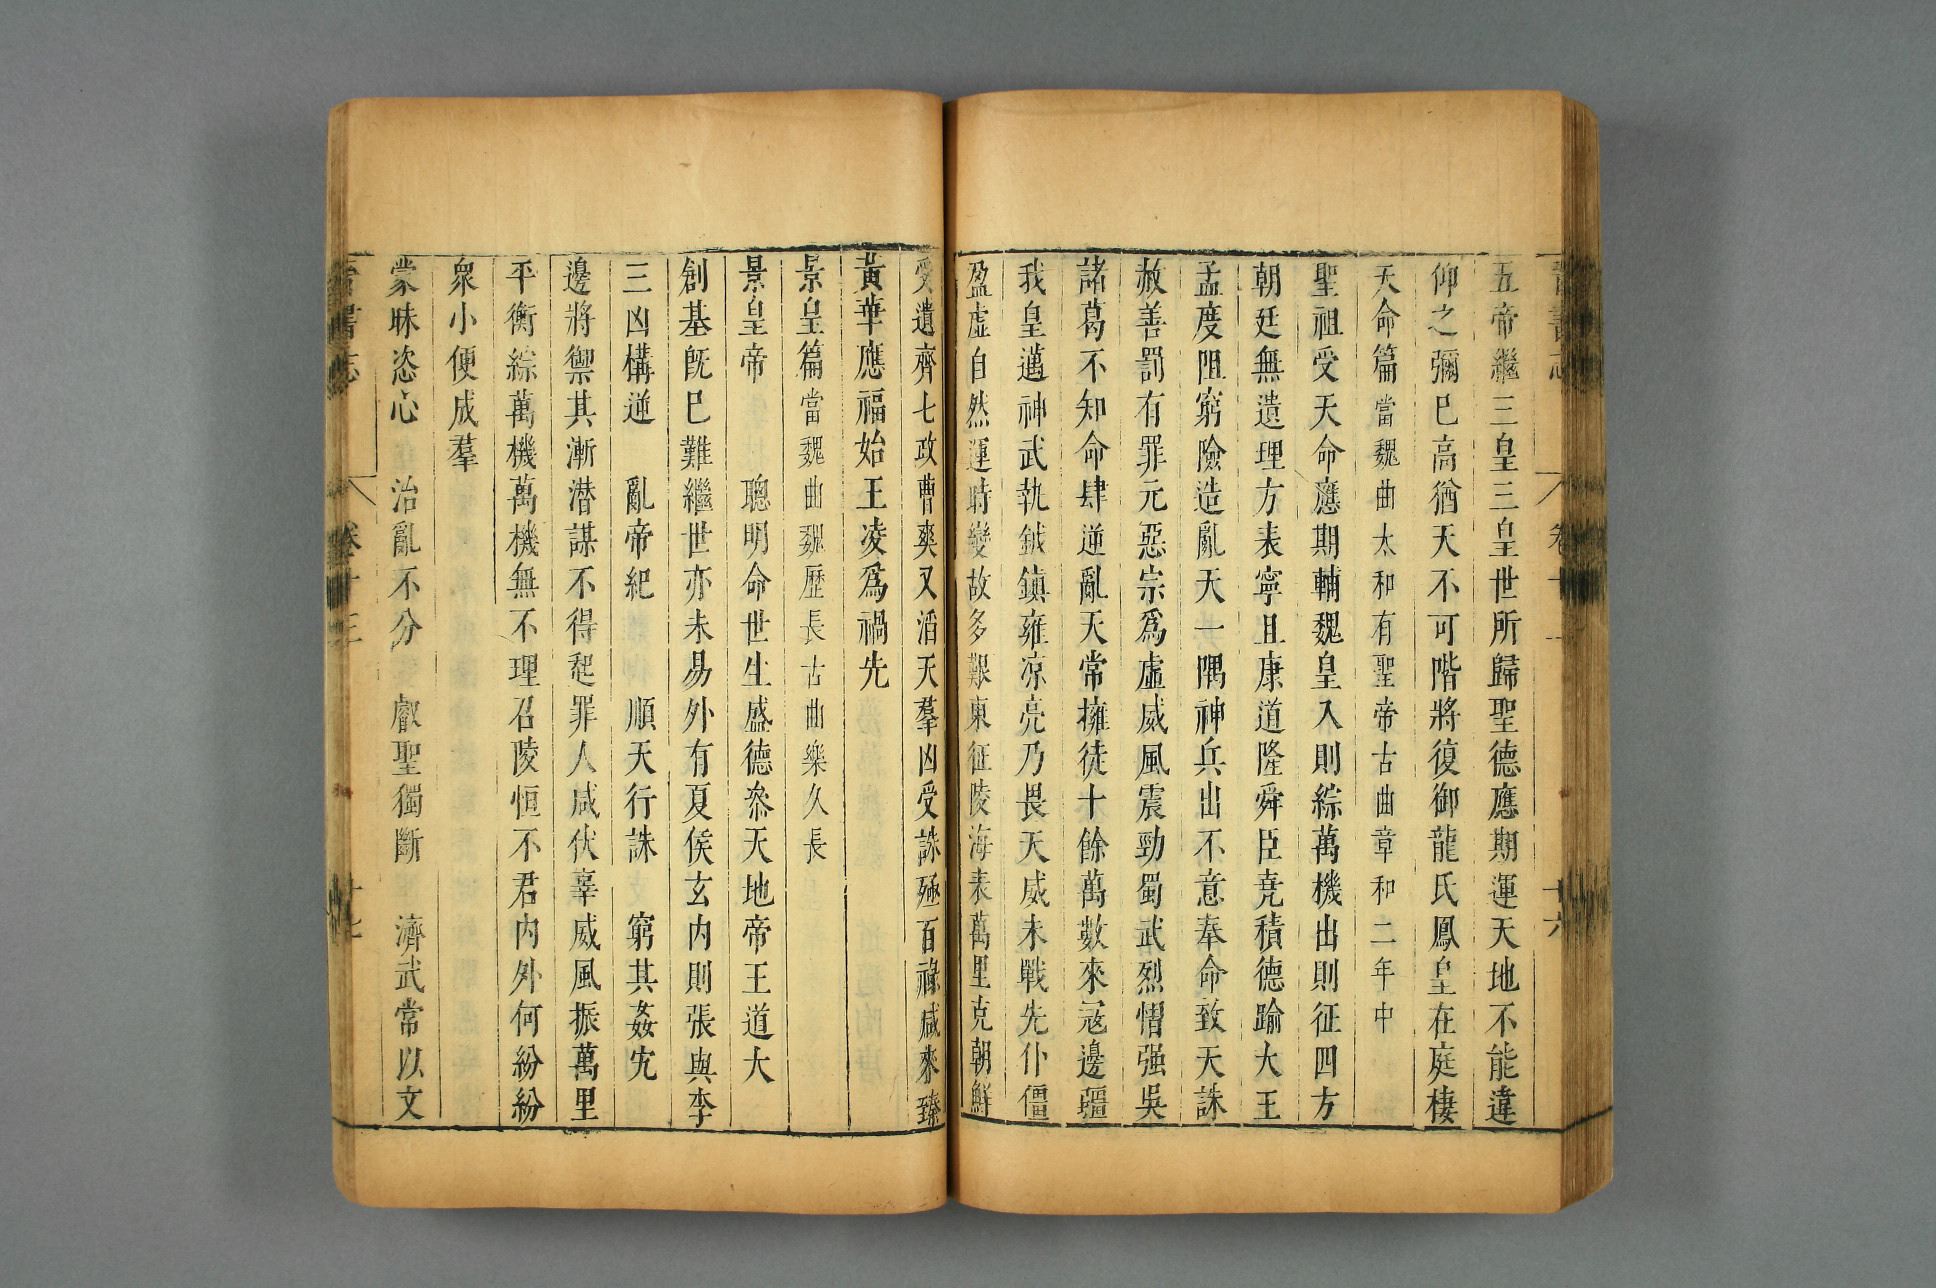 五帝繼三皇三皇世所歸聖德應期運天地不能違
仰之彌巳高猶天不可階將復御龍氏鳳皇在庭棲
天命篇當魏曲太和有聖帝古曲章和二年中
聖祖受天命應期輔魏皇入則綜萬機出則征四方
朝廷無遺理方表寧且康道隆舜臣堯積德踰太王
孟度阻窮險造亂天一隅神兵出不意奉命致天誅
赦善罰有罪元惡宗爲虛威風震勁蜀武烈慴强吳
諸葛不知命肆逆亂天常擁徒十餘萬數來寇邊疆
我皇邁神武執鉞鎮雍凉亮乃畏天威未戰先仆僵
盈虛自然運時變故多艱東征陵海表萬里克朝鮮
受遺齊七政曹爽又滔天羣凶受誅殛百祿咸來臻
黃華應福始王凌爲禍先
景皇篇當魏曲魏歷長古曲樂久長
景皇帝 聰明命世生盛德叅天地帝王道大
創基旣巳難繼世亦未易外有夏侯玄内則張與李
三凶構逆 亂帝紀 順天行誅 窮其姦宄
邊將禦其漸潛謀不得起罪人咸伏辜威風振萬里
平衡綜萬機萬機無不理召陵恒不君内外何紛紛
衆小便成羣
蒙昧恣心 治亂不分 叡聖獨斷 濟武常以文
晉書志 卷十三 十七